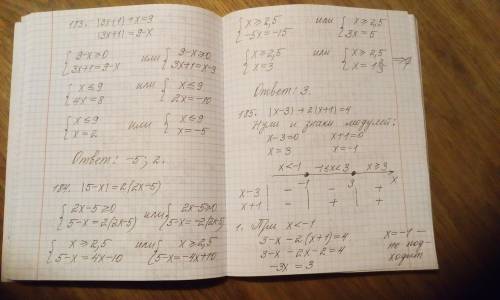 183. |3x+1|+x=9
|3x+1|=9-x
{9-x≥0 {3x+1=9-x или {9-x≥0 {3x+1=x-9
{x≤9 {4x=8 или {x≤9 {2x=-10
{x≤9 {x=2 или {x≤9 {x=-5
Ответ: -5; 2.
184. |5-x|=2(2x-5)
{2x-5≥0 {5-x=2(2x-5) или {2x-5≥0 {5-x=-2(2x-5)
{x≥2,5 {5-x=4x-10 или {x≥2,5 {5-x=-4x+10
{x≥2,5 {-5x=-15 или {x≥2,5 {3x=5
{x≥2,5 {x=3 или {x≥2,5
Ответ: 3.
185. |x-3|+2|x+1|=4
Нули и знаки модулей:
x-3=0 x+1=0
x=3 x=-1
x<-1 -1≤x<3 x≥3
-1 3 x
x-3 - - +
x+1 - + +
1. При x<-1
3-x-2(x+1)=4
3-x-2x-2=4
-3x=3
x=-1 -
не под-
ходит